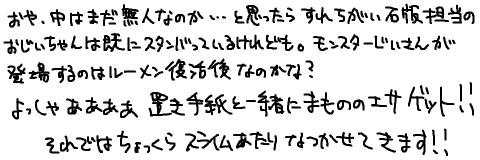 おや、中はまだ無人なのか…と思ったら すれちがい石版担当の
おじいちゃんは既にスタンバっているけれども。モンスターじいさんが
登場するのはルーメン復活後なのかな？
よっしゃああああ 置き手紙と一緒にまもののエサ ゲット!!
それではちょっくら スライムあたり なつかせてきます!!